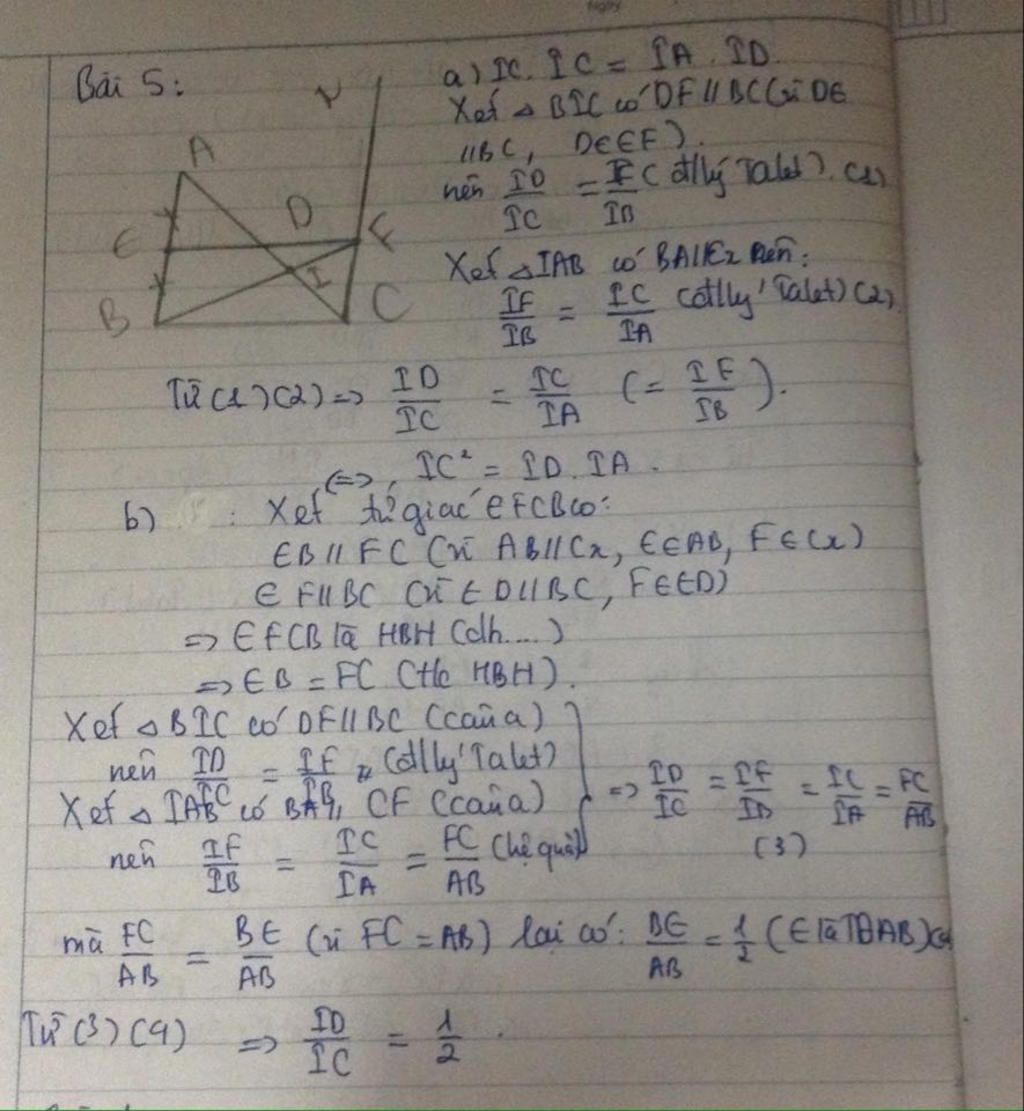 Bài 5:
x
A
D
E
F
I
B
C
a) IC. IC = IA. ID.
Xét △ BIC có DF // BC (vì DE
// BC, D∈EF).
nên ID/IC = IF/IB (đlý Talet). (1)
Xét △IAB có BA//Cx nên:
IF/IB = IC/IA (đlly' Talet) (2)
Từ (1)(2) => ID/IC = IC/IA (= IF/IB).
<=> IC² = ID. IA.
b) : Xét tứ giác EFCB có:
EB // FC (vì AB // Cx, E∈AB, F∈Cx)
EF // BC (vì ED // BC, F∈ED)
=> EFCB là HBH (dh....)
=> EB = FC (t/c HBH).
Xét △ BIC có DF // BC (câu a)
nên ID/IC = IF/IB (đlly' Talet)
Xét △ IAB có BA // CF (câu a)
nên IF/IB = IC/IA = FC/AB (hệ quả)
=> ID/IC = IF/IB = IC/IA = FC/AB
(3)
mà FC/AB = BE/AB (vì FC = AB) lại có: BE/AB = 1/2 (E là TĐ AB) (4)
Từ (3) (4) => ID/IC = 1/2.